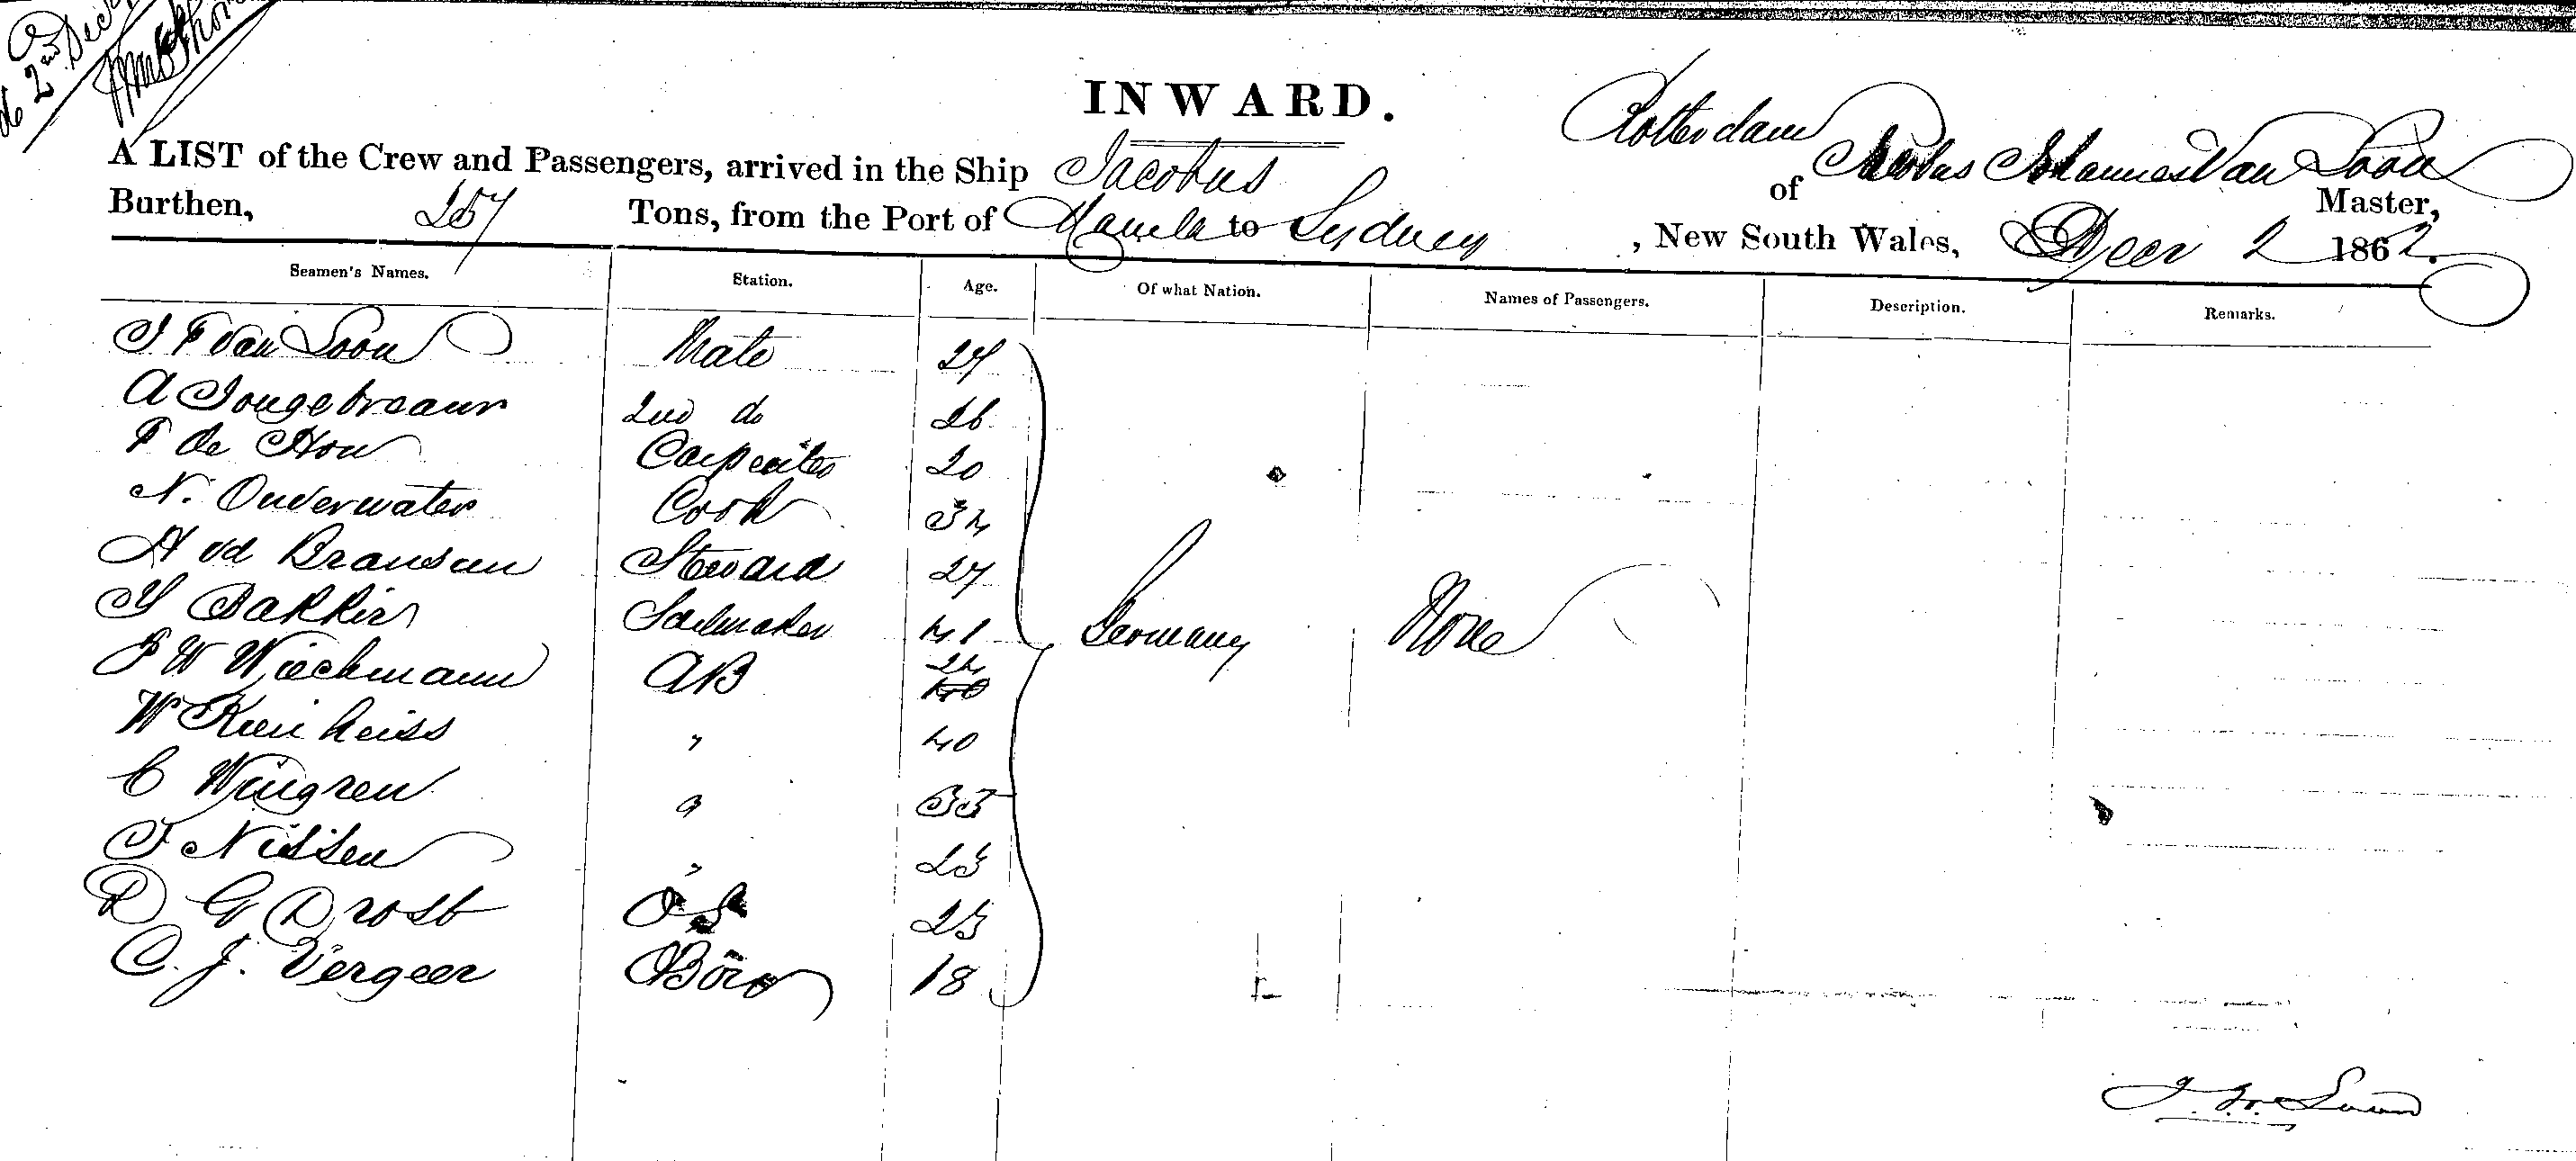 de 2nd Decr
INWARD.
A LIST of the Crew and Passengers, arrived in the Ship Jacobus of Rotterdam Jacobus Johannes Van Loon Master,
Burthen, 257 Tons, from the Port of Manila to Sydney , New South Wales, Decr 2 1862.
Seamen's Names. Station. Age. Of what Nation. Names of Passengers. Description. Remarks.
J F van Loon Mate 27
A Jongebreaur 2nd do 26
F de Hon Carpenter 20
N. Onderwater Cook 34
H vd Brandsen Steward 27
Y Bakker Sailmaker 41 Germany None
F W Wieckmann AB 24
W Kuinheiss " 40
C Wingren " 35
J Nissen " 23
D G Drost OS 23
C. J. Vergeer Boy 18
J. v. Loon